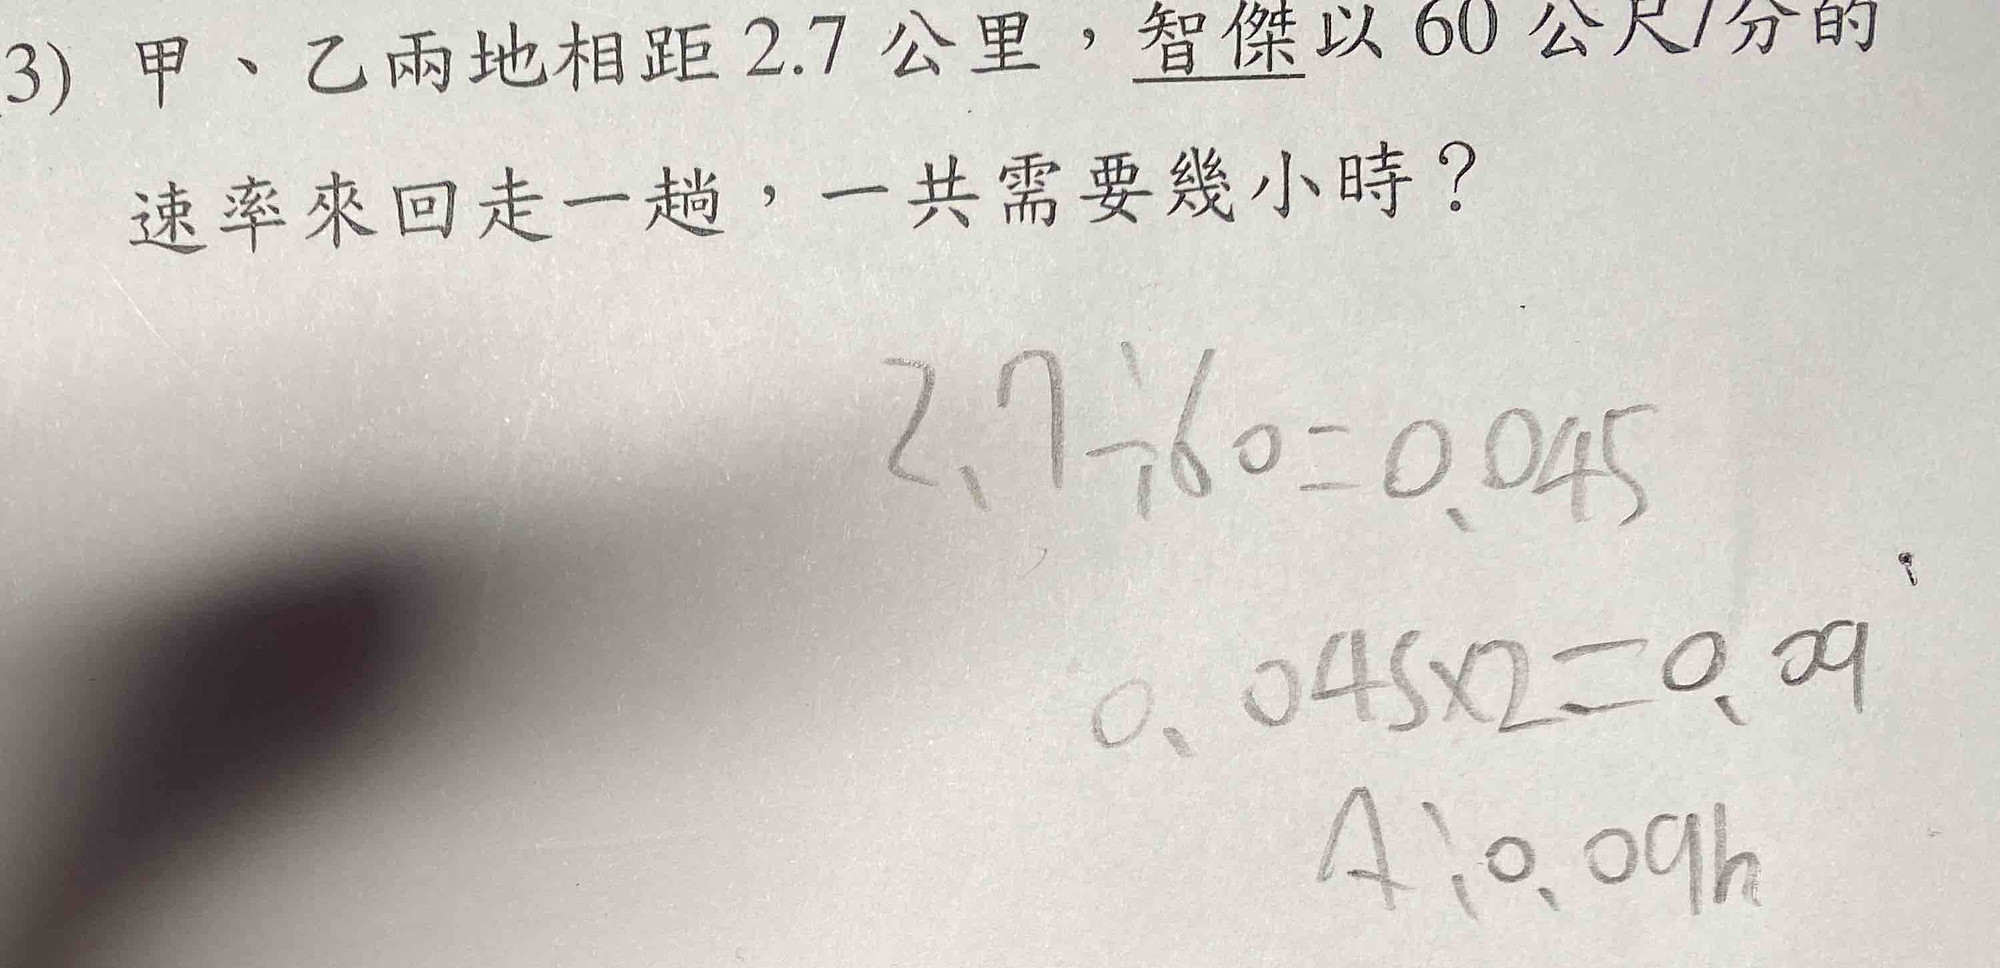 3) 甲、乙兩地相距 2.7 公里，智傑以 60 公尺/分的
速率來回走一趟，一共需要幾小時？
2.7÷60=0.045
0.045×2=0.09
A:0.09h